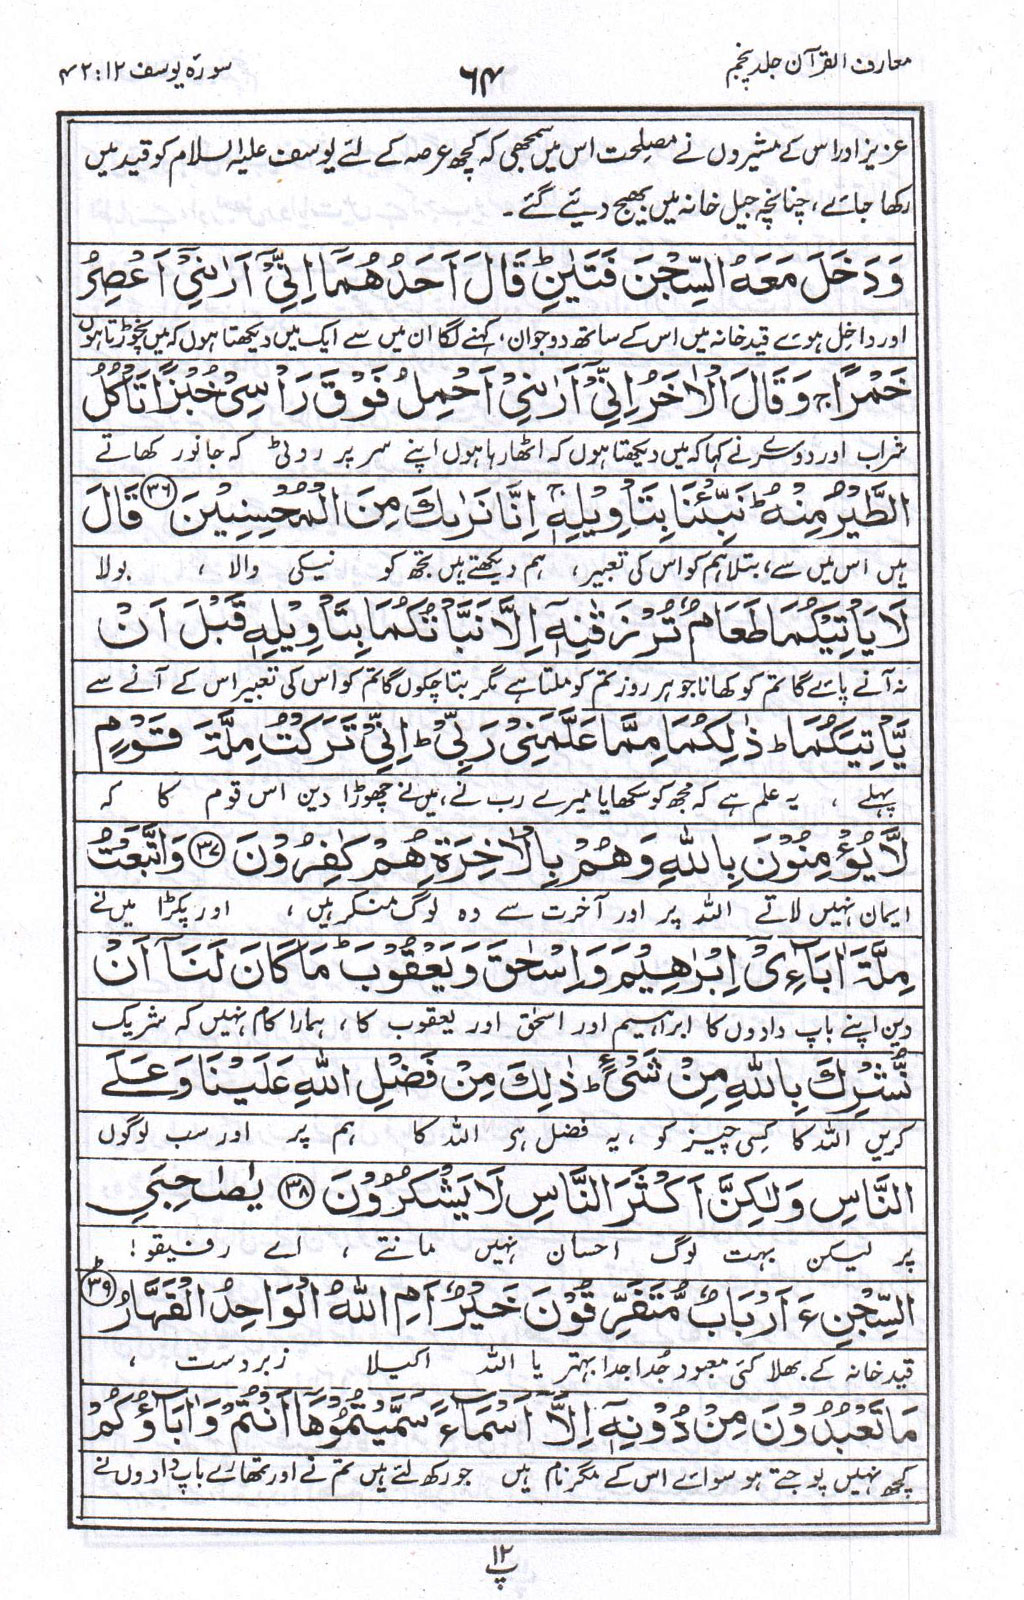 معارف القرآن جلد پنجم
۶۴
سورۃ یوسف ۱۲ : ۴۲
عزیز اور اس کے مشیروں نے مصلحت اس میں سمجھی کہ کچھ عرصہ کے لئے یوسف علیہ السلام کو قید میں
رکھا جائے، چنانچہ جیل خانہ میں بھیج دیئے گئے۔
وَدَخَلَ مَعَهُ السِّجْنَ فَتَيٰنِ ؕ قَالَ اَحَدُهُمَآ اِنِّيْٓ اَرٰىنِيْٓ اَعْصِرُ
اور داخل ہوئے قید خانہ میں اس کے ساتھ دو جوان، کہنے لگا ان میں سے ایک میں دیکھتا ہوں کہ میں نچوڑتا ہوں
خَمْرًا ۚ وَقَالَ الْاٰخَرُ اِنِّيْٓ اَرٰىنِيْٓ اَحْمِلُ فَوْقَ رَاْسِيْ خُبْزًا تَاْكُلُ
شراب اور دوسرے نے کہا کہ میں دیکھتا ہوں کہ اٹھا رہا ہوں اپنے سر پر روٹی کہ جانور کھاتے
الطَّيْرُ مِنْهُ ؕ نَبِّئْنَا بِتَاْوِيْلِهٖ ۚ اِنَّا نَرٰىكَ مِنَ الْمُحْسِنِيْنَ ﴿۳۶﴾ قَالَ
ہیں اس میں سے، بتلا ہم کو اس کی تعبیر، ہم دیکھتے ہیں تجھ کو نیکی والا ، بولا
لَا يَاْتِيْكُمَا طَعَامٌ تُرْزَقٰنِهٖٓ اِلَّا نَبَّاْتُكُمَا بِتَاْوِيْلِهٖ قَبْلَ اَنْ
نہ آنے پائے گا تم کو کھانا جو ہر روز تم کو ملتا ہے مگر بتا چکوں گا تم کو اس کی تعبیر اس کے آنے سے
يَّاْتِيَكُمَا ؕ ذٰلِكُمَا مِمَّا عَلَّمَنِيْ رَبِّيْ ؕ اِنِّيْ تَرَكْتُ مِلَّةَ قَوْمٍ
پہلے ، یہ علم ہے کہ مجھ کو سکھایا میرے رب نے، میں نے چھوڑا دین اس قوم کا کہ
لَّا يُؤْمِنُوْنَ بِاللّٰهِ وَهُمْ بِالْاٰخِرَةِ هُمْ كٰفِرُوْنَ ﴿۳۷﴾ وَاتَّبَعْتُ
ایمان نہیں لاتے اللہ پر اور آخرت سے وہ لوگ منکر ہیں ، اور پکڑا میں نے
مِلَّةَ اٰبَآءِيْٓ اِبْرٰهِيْمَ وَاِسْحٰقَ وَيَعْقُوْبَ ؕ مَا كَانَ لَنَآ اَنْ
دین اپنے باپ دادوں کا ابراہیم اور اسحٰق اور یعقوب کا ، ہمارا کام نہیں کہ شریک
نُّشْرِكَ بِاللّٰهِ مِنْ شَيْءٍ ؕ ذٰلِكَ مِنْ فَضْلِ اللّٰهِ عَلَيْنَا وَعَلَى
کریں اللہ کا کسی چیز کو ، یہ فضل ہے اللہ کا ہم پر اور سب لوگوں
النَّاسِ وَلٰكِنَّ اَكْثَرَ النَّاسِ لَا يَشْكُرُوْنَ ﴿۳۸﴾ يٰصَاحِبَيِ
پر لیکن بہت لوگ احسان نہیں مانتے ، اے رفیقو!
السِّجْنِ ءَاَرْبَابٌ مُّتَفَرِّقُوْنَ خَيْرٌ اَمِ اللّٰهُ الْوَاحِدُ الْقَهَّارُ ﴿۳۹﴾ؕ
قید خانہ کے بھلا کئی معبود جدا جدا بہتر یا اللہ اکیلا زبردست ،
مَا تَعْبُدُوْنَ مِنْ دُوْنِهٖٓ اِلَّآ اَسْمَآءً سَمَّيْتُمُوْهَآ اَنْتُمْ وَاٰبَآؤُكُمْ
کچھ نہیں پوجتے ہو سوائے اس کے مگر نام ہیں جو رکھ لئے ہیں تم نے اور تمھارے باپ دادوں نے
۱۲
پ